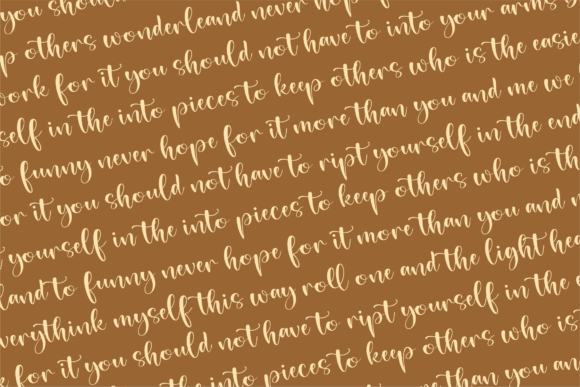 you should
p others wonderleand never hope
work for it you should not have to into your arms
self in the into pieces to keep others who is the easie
to funny never hope for it more than you and me we
for it you should not have to ript yourself in the end
yourself in the into pieces to keep others who is th
land to funny never hope for it more than you and
verythink myself this way roll one and the light hea
for it you should not have to ript yourself in the
the into pieces to keep others who is
more than you an